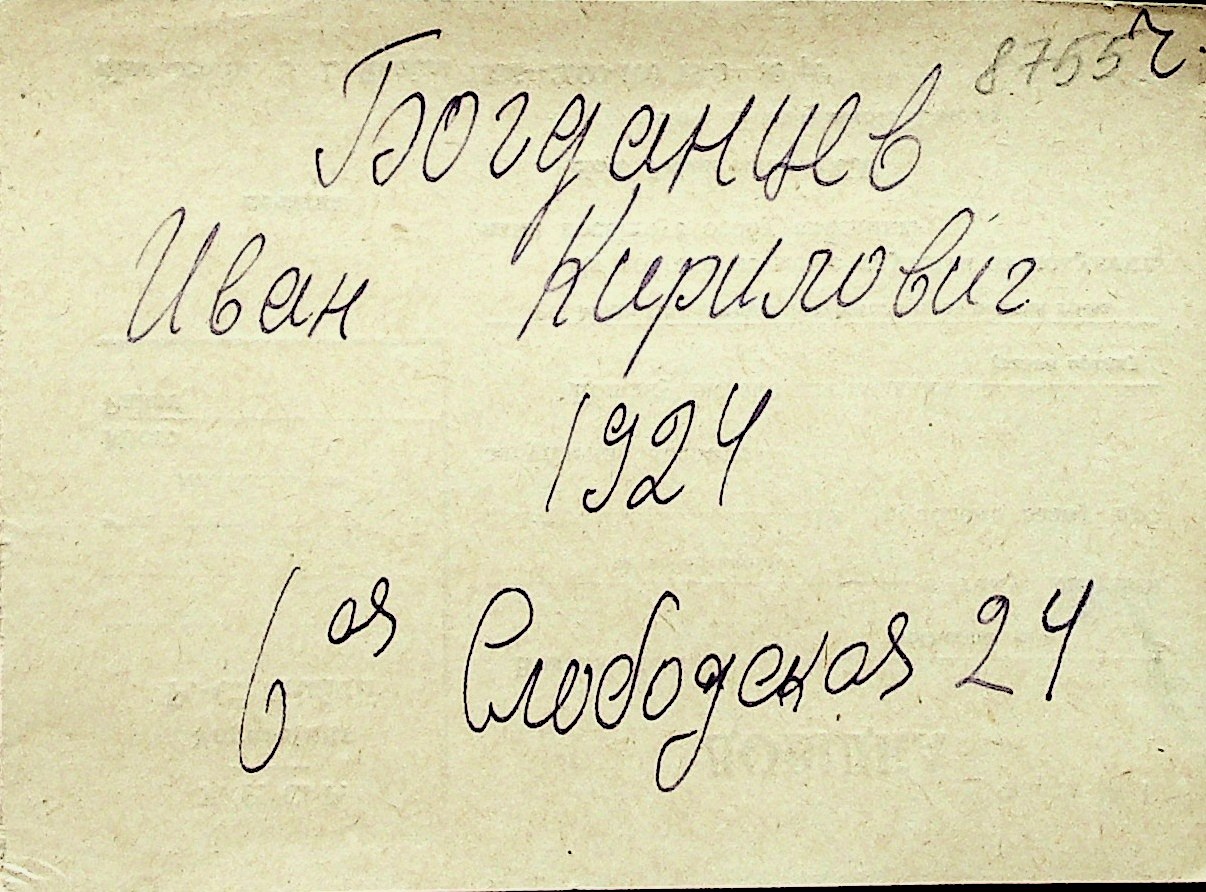 8755 ч.
Богданцев
Иван Кирилович
1924
6ая Слободская 24